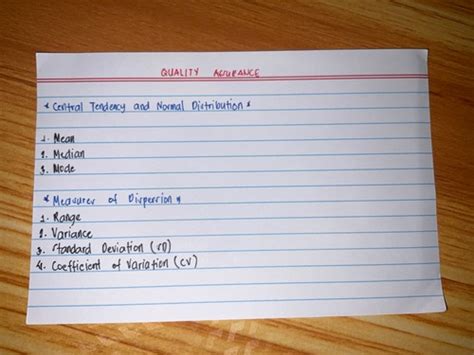 QUALITY ASSURANCE
* Central Tendency and Normal Distribution *
1. Mean
2. Median
3. Mode
* Measures of Dispersion *
1. Range
2. Variance
3. Standard Deviation (SD)
4. Coefficient of Variation (CV)